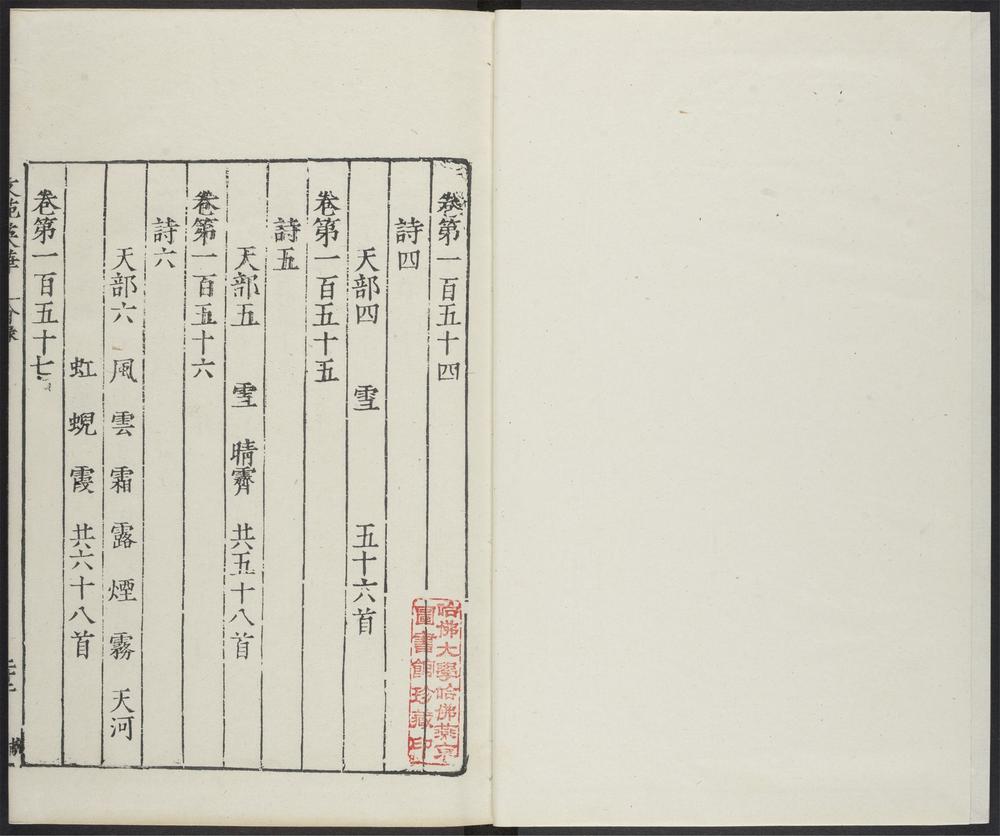 卷第一百五十四
詩四
天部四 雪 五十六首
卷第一百五十五
詩五
天部五 雪 晴霽 共五十八首
卷第一百五十六
詩六
天部六 風 雲 霜 露 煙 霧 天河
虹 蜺 霞 共六十八首
卷第一百五十七
文苑英華
哈佛大學哈佛燕京
圖書館珍藏印